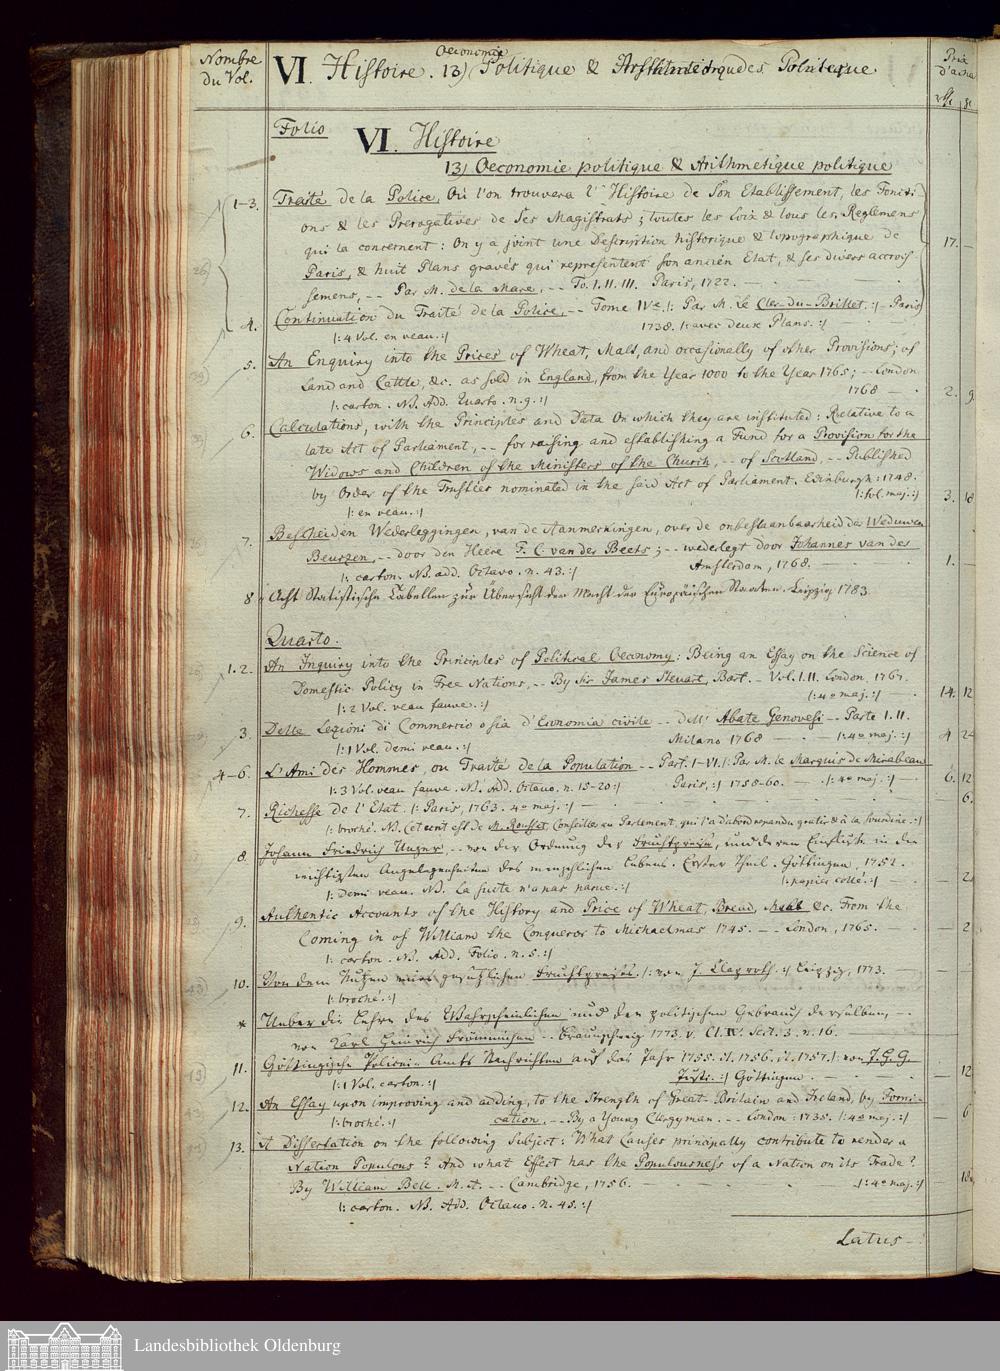 Nombre du Vol.
Oeconomie
VI. Histoire. 13) Politique & Arithmetique Politique
Prix d'achat
Folio
VI. Histoire
13) Oeconomie politique & Arithmetique politique
1-3. Traité de la Police, Où l'on trouvera l'Histoire de son Etablissement, les Foncti-
ons & les Prerogatives de ses Magistrats; toutes les Loix & tous les Reglemens
qui la concernent: On y a joint une Description historique & topographique de
Paris, & huit Plans gravés qui representent son ancien Etat, & ses divers accrois-
semens, -- Par M. de la Mare, -- To. I. II. III. Paris, 1722. 17.
4. Continuation du Traité de la Police, -- Tome IVe /: Par M. Le Cler-du-Brillet. :/ - Paris
1738. /: avec deux Plans. :/
/: 4 Vol. en veau. :/
5. An Enquiry into the Prices of Wheat, Malt, and occasionally of other Provisions; of
Land and Cattle, &c. as sold in England, from the Year 1000 to the Year 1765; -- London
1768 2. 9.
/: carton. NB. Add. Quarto. n. 9. :/
6. Calculations, with the Principles and Data on which they are instituted: Relative to a
late Act of Parliament, -- for raising and establishing a Fund for a Provision for the
Widows and Children of the Ministers of the Church, -- of Scotland, -- Published
by Order of the Trusties nominated in the said Act of Parliament. Edinburgh: 1748.
/: fol. maj. :/ 3. 18
/: en veau. :/
7. Bescheiden Wederleggingen, van de Aanmerkingen, over de onbestaanbaarheid der Weduwen
Beurzen, -- door den Heere F. C. van der Beets; -- wederlegt door Johannes van der
Amsterdam, 1768. 1.
/: carton. NB. add. Octavo. n. 43. :/
8. Acht Statistische Tabellen zur Übersicht der Macht der Europäischen Staaten. Leipzig 1783.
Quarto.
1. 2. An Inquiry into the Principles of Political Oeconomy: Being an Essay on the Science of
Domestic Policy in Free Nations, -- By Sir James Steuart, Bart. - Vol. I. II. London, 1767.
/: 4o maj. :/ 14. 12
/: 2 Vol. veau fauve. :/
3. Delle Lezioni di Commercio o sia d'Economia civile -- dell' Abate Genovesi -- Parte I. II.
Milano 1768 /: 4o maj. :/ 4
/: 1 Vol. demi veau. :/
4-6. L'Ami des Hommes, ou Traité de la Population -- Part. I-VI. /: Par M. le Marquis de Mirabeau
Paris, :/ 1758-60. /: 4o maj. :/ 6. 12
/: 3 Vol. veau fauve. NB. Add. Octavo. n. 15-20 :/
7. Richesse de l'Etat. /: Paris, 1763. 4o maj. :/ 6.
/: broché. NB. Cet ecrit est de M. Roussel, Conseiller au Parlement, qui l'a d'abord repandu gratis & à la sourdine. :/
8. Johann Friedrich Unger, -- von der Ordnung der Fruchtpreise, und deren Einflusse in die
wichtigsten Angelegenheiten des menschlichen Lebens. Erster Theil. Göttingen, 1752.
/: papier collé. :/
/: Demi veau. NB. La suite n'a pas parue. :/
9. Authentic Accounts of the History and Price of Wheat, Bread, Malt &c. From the
Coming in of William the Conqueror to Michaelmas 1745. -- London, 1765. 2
/: carton. NB. Add. Folio. n. 5. :/
10. Von dem Nutzen eines gesetzlichen Fruchtpreises. /: von J. Claproth. :/ Leipzig, 1773.
/: broché. :/
* Ueber die Lehre des Wahrscheinlichen und den politischen Gebrauch derselben, --
von Carl Heinrich Frömmichen -- Braunschweig 1773. v. Cl. IV. Sect. 3. n. 16.
11. Göttingische Policei-Amts Nachrichten auf das Jahr 1755. 1756. 1757. /: von J. H. G.
Justi. :/ Göttingen. 12
/: 1 Vol. carton. :/
12. An Essay upon improving and adding, to the Strength of Great-Britain and Ireland, by Forni-
cation. -- By a Young Clergyman. -- London: 1735. /: 4o maj. :/ 6
/: broché. :/
13. A Dissertation on the following Subject: What Causes principally contribute to render a
Nation Populous? And what Effect has the Populousness of a Nation on its Trade?
By William Bell, M. A. -- Cambridge, 1756. /: 4o maj. :/ 18
/: carton. NB. Add. Octavo. n. 45. :/
Latus
Landesbibliothek Oldenburg